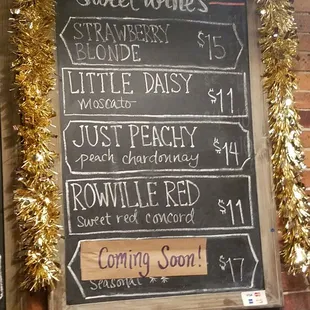 Sweet Wines
STRAWBERRY
BLONDE
$15
LITTLE DAISY
moscato
$11
JUST PEACHY
peach chardonnay
$14
ROWVILLE RED
sweet red concord
$11
Coming Soon!
seasonal **
$17